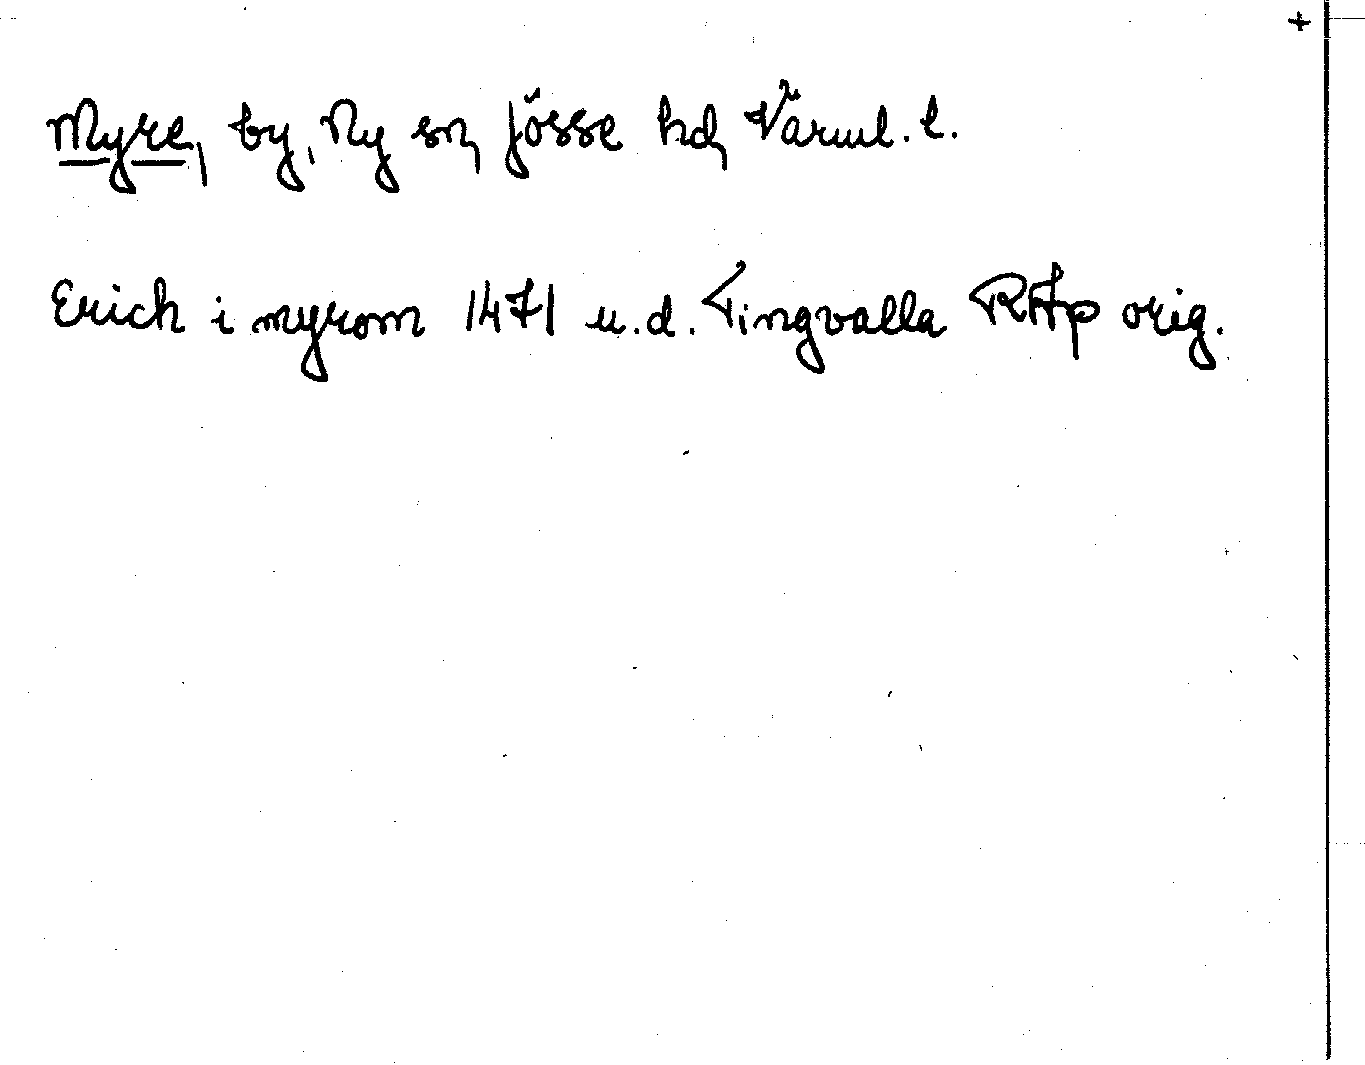 +
Myre, by, Ny sn, Jösse hd, Värml. l.
Erich i myrom 1471 u.d. Tingvalla RAp orig.